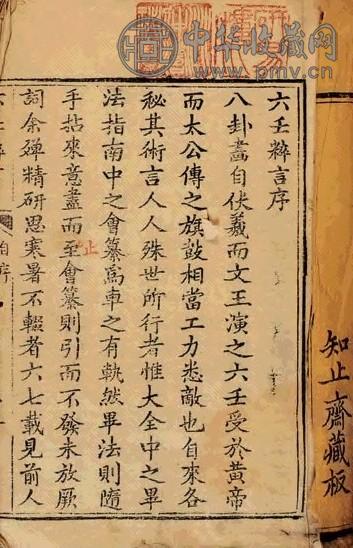 知止齋藏板
六壬粹言序
八卦畫自伏羲而文王演之六壬受於黃帝
而太公傳之旗鼓相當工力悉敵也自來各
秘其術言人人殊世所行者惟大全中之畢
法指南中之會纂爲車之有軌然畢法則隨
手拈來意盡而至會纂則引而不發未放厥
詞余殫精研思寒暑不輟者六七載見前人
自序
中华收藏网
pmv.com